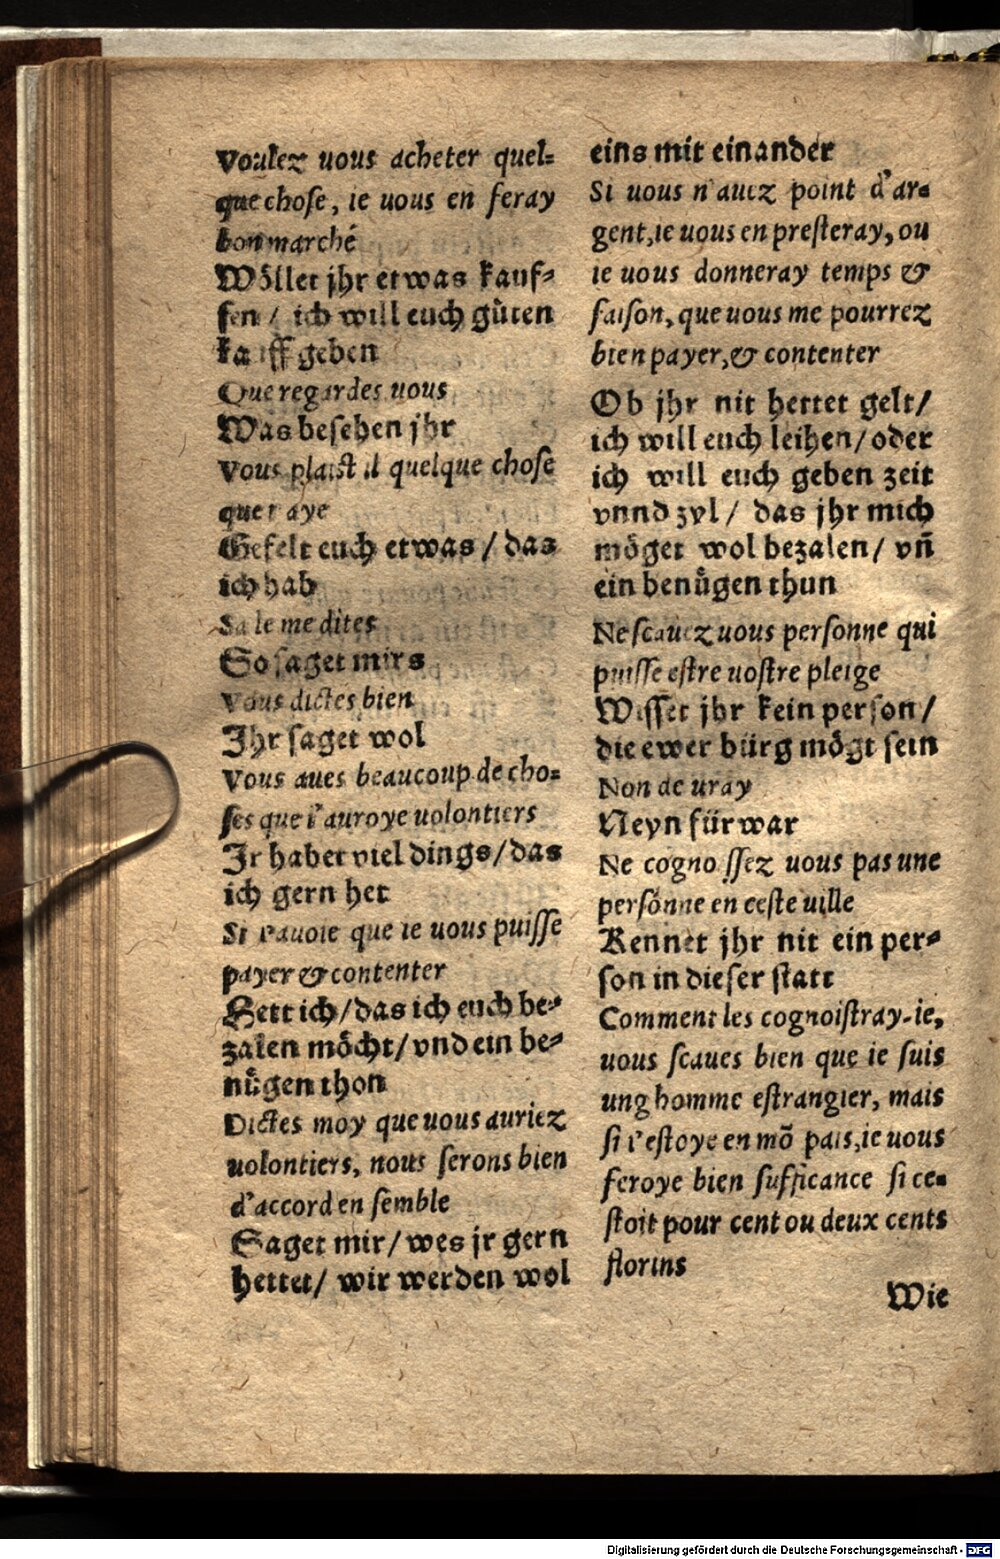 Voulez uous acheter quel=
que chose, ie uous en feray
bon marché
Wöllet jhr etwas kauf⸗
fen / ich will euch gůten
kauff geben
Que regardes uous
Was besehen jhr
Vous plaist il quelque chose
que i'aye
Gefelt euch etwas / das
ich hab
Sa le me dites
So saget mirs
Vous dictes bien
Jhr saget wol
Vous aues beaucoup de cho=
ses que i'auroye uolontiers
Jr habet viel dings/das
ich gern het
Si i'auoie que ie uous puisse
payer & contenter
Hett ich/das ich euch be⸗
zalen möcht/vnd ein be⸗
nůgen thon
Dictes moy que uous auriez
uolontiers, nous serons bien
d'accord en semble
Saget mir/wes jr gern
hettet/ wir werden wol
eins mit einander
Si uous n'auez point d'ar=
gent,ie uous en presteray, ou
ie uous donneray temps &
saison, que uous me pourrez
bien payer,& contenter
Ob jhr nit hettet gelt/
ich will euch leihen/oder
ich will euch geben zeit
vnnd zyl / das jhr mich
möget wol bezalen/ vñ
ein benůgen thun
Ne scauez uous personne qui
puisse estre uostre pleige
Wisset jhr kein person/
die ewer bürg mögt sein
Non de uray
Neyn fürwar
Ne cognoissez uous pas une
persõnne en ceste uille
Kennet jhr nit ein per⸗
son in dieser statt
Comment les cognoistray-ie,
uous scaues bien que ie suis
ung homme estrangier, mais
si i'estoye en mõ pais,ie uous
feroye bien sufficance si ce=
stoit pour cent ou deux cents
florins
Wie
Digitalisierung gefördert durch die Deutsche Forschungsgemeinschaft - DFG